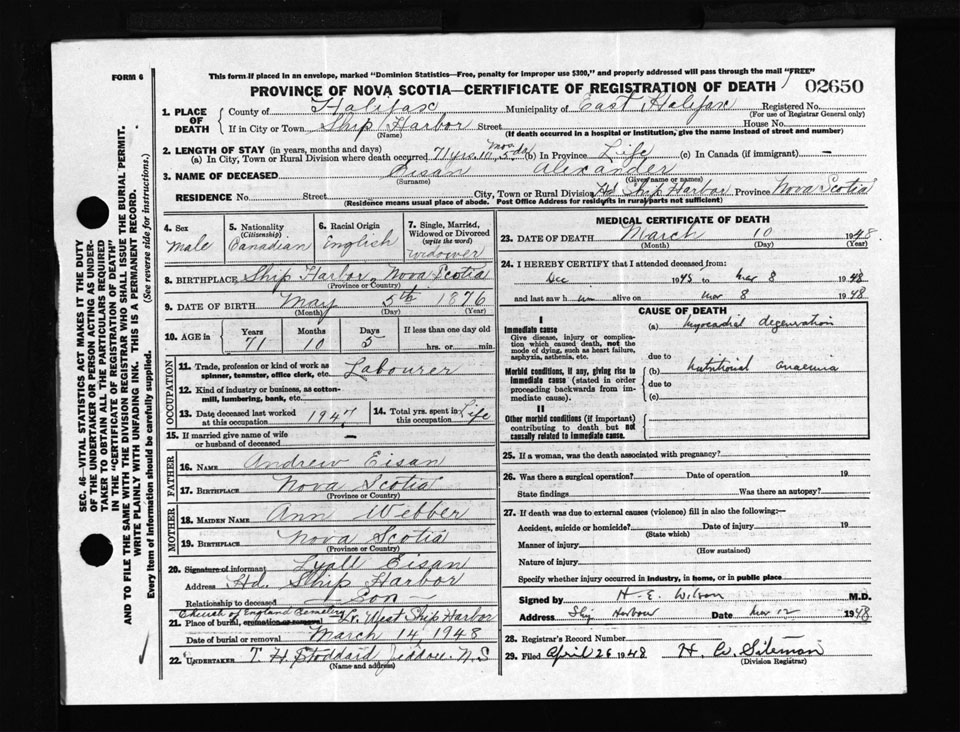 FORM 6
This form if placed in an envelope, marked "Dominion Statistics—Free, penalty for improper use $300," and properly addressed will pass through the mail "FREE"
PROVINCE OF NOVA SCOTIA—CERTIFICATE OF REGISTRATION OF DEATH
02650
1. PLACE OF DEATH
County of Halifax Municipality of East Halifax Registered No.
(For use of Registrar General only)
If in City or Town Ship Harbor Street House No.
(Name) (If death occurred in a hospital or institution, give the name instead of street and number)
2. LENGTH OF STAY (in years, months and days)
(a) In City, Town or Rural Division where death occurred 71 yrs 10 mos 5 da (b) In Province Life (c) In Canada (if immigrant) —
3. NAME OF DECEASED Eisan Alexander
(Surname) (Given name or names)
RESIDENCE No. Street City, Town or Rural Division Hd. Ship Harbor Province Nova Scotia
(Residence means usual place of abode. Post Office Address for residents in rural parts not sufficient)
4. Sex
Male
5. Nationality
(Citizenship)
Canadian
6. Racial Origin
English
7. Single, Married, Widowed or Divorced
(write the word)
Widower
8. BIRTHPLACE Ship Harbor, Nova Scotia
(Province or Country)
9. DATE OF BIRTH May 5th 1876
(Month) (Day) (Year)
10. AGE in
Years Months Days If less than one day old
71 10 5 hrs. or min.
OCCUPATION
11. Trade, profession or kind of work as spinner, teamster, office clerk, etc. Labourer
12. Kind of industry or business, as cotton-mill, lumbering, bank, etc.
13. Date deceased last worked at this occupation 1947
14. Total yrs. spent in this occupation Life
15. If married give name of wife or husband of deceased —
FATHER
16. NAME Andrew Eisan
17. BIRTHPLACE Nova Scotia
(Province or Country)
MOTHER
18. MAIDEN NAME Ann Webber
19. BIRTHPLACE Nova Scotia
(Province or Country)
20. Signature of informant Lyall Eisan
Address Hd. Ship Harbor
Relationship to deceased Son
Church of England Cemetery
21. Place of burial, cremation or removal Lr. West Ship Harbor
Date of burial or removal March 14, 1948
22. UNDERTAKER T. H. Stoddard Jeddore N.S
(Name and address)
MEDICAL CERTIFICATE OF DEATH
23. DATE OF DEATH March 10 1948
(Month) (Day) (Year)
24. I HEREBY CERTIFY that I attended deceased from:
Dec 1945 to Mar 8 1948
and last saw him alive on Mar 8 1948
CAUSE OF DEATH
I
Immediate cause
Give disease, injury or complication which caused death, not the mode of dying, such as heart failure, asphyxia, asthenia, etc.
(a) Myocardial degeneration
due to
Morbid conditions, if any, giving rise to immediate cause (stated in order proceeding backwards from immediate cause).
(b) Nutritional anaemia
due to
(c)
II
Other morbid conditions (if important) contributing to death but not causally related to immediate cause.
25. If a woman, was the death associated with pregnancy?
26. Was there a surgical operation? Date of operation 19
State findings Was there an autopsy?
27. If death was due to external causes (violence) fill in also the following:—
Accident, suicide or homicide? Date of injury 19
(State which)
Manner of injury
(How sustained)
Nature of injury
Specify whether injury occurred in industry, in home, or in public place
Signed by H. E. Wilson M.D.
Address Ship Harbour Date Mar 12 1948
28. Registrar's Record Number
29. Filed April 26 1948 H. W. Siteman
(Division Registrar)
SEC. 46—VITAL STATISTICS ACT MAKES IT THE DUTY
OF THE UNDERTAKER OR PERSON ACTING AS UNDERTAKER TO OBTAIN ALL THE PARTICULARS REQUIRED
IN THE "CERTIFICATE OF REGISTRATION OF DEATH"
AND TO FILE THE SAME WITH THE DIVISION REGISTRAR WHO SHALL ISSUE THE BURIAL PERMIT.
WRITE PLAINLY WITH UNFADING INK. THIS IS A PERMANENT RECORD.
Every item of information should be carefully supplied. (See reverse side for instructions.)